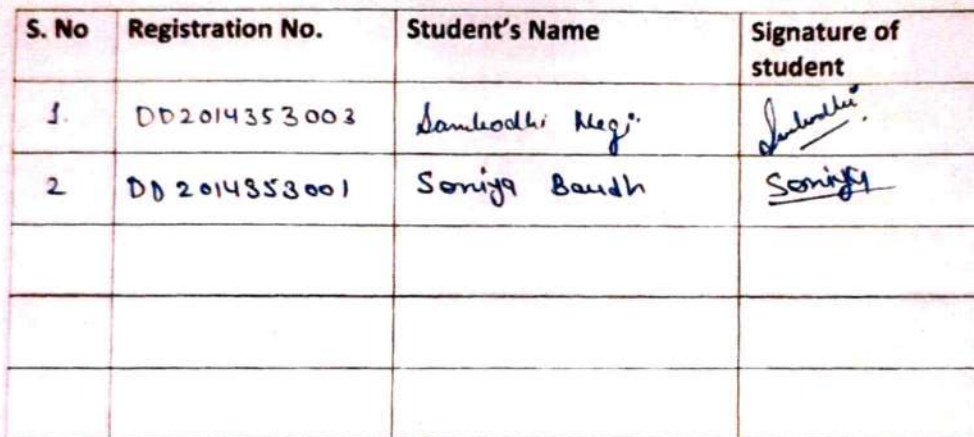 S. No Registration No. Student's Name Signature of student
1. DD2014353003 Sambodhi Negi Sambodhi
2 DD2014353001 Soniya Baudh Soniya